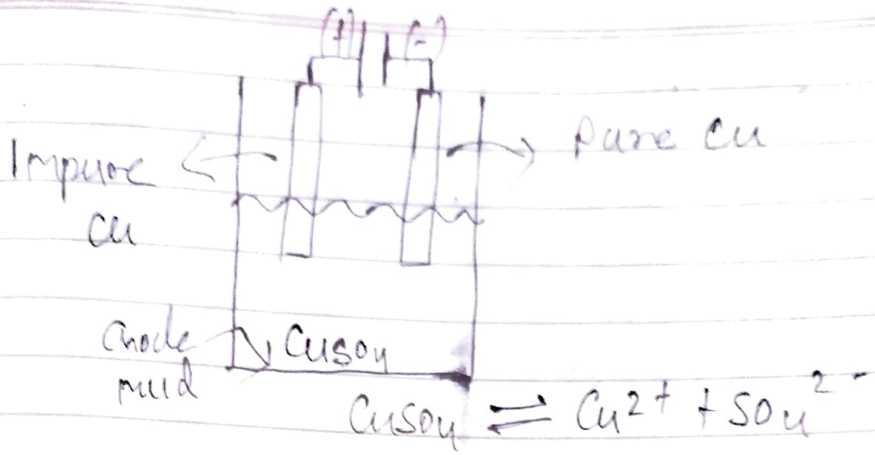 (+) (-)
Impure
Cu
Pure Cu
Anode
mud
CuSO4
CuSO4 ⇌ Cu2+ + SO4 2-